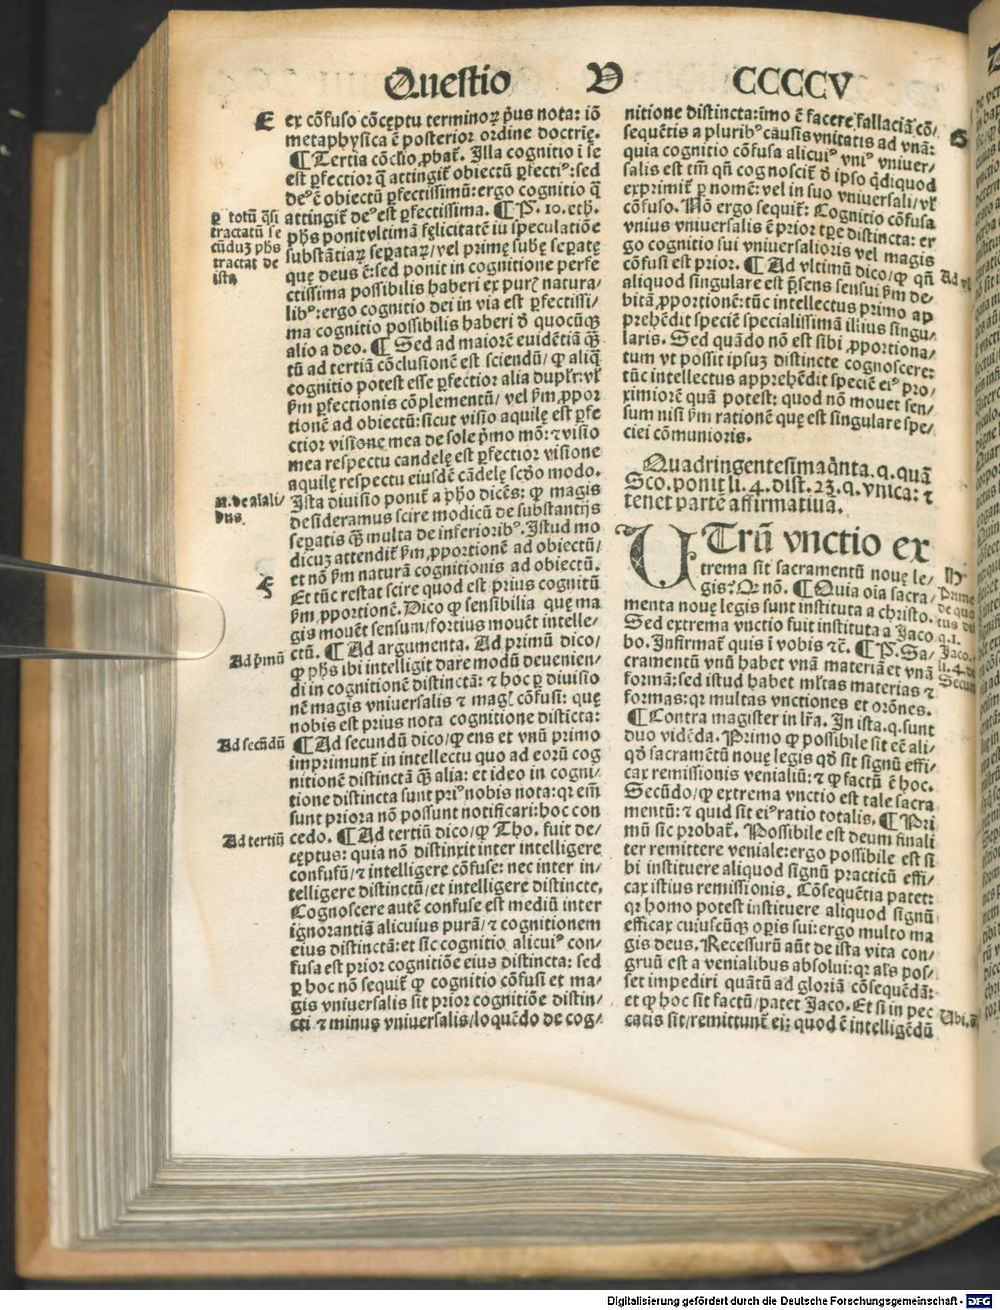 Questio V CCCCV
E
ex cõfuso cõceptu terminoꝝ p̃us nota: iõ
metaphysica ẽ posterior ordine doctrię.
¶ Tertia cõclio ꝓbat̃. Illa cognitio ĩ se
est ꝑfectior q̃ attingit̃ obiectũ ꝑfectiꝰ: sed
deꝰ ẽ obiectũ ꝑfectissimũ: ergo cognitio q̃
attingit̃ deꝰ est ꝑfectissima. ¶ P̃. 10. eth.
ꝑ totũ q̃si
tractatũ se
cũduꝫ phs
tractat de
ista
phs ponit vltimã fęlicitatẽ iu speculatiõe
substãtiaꝝ sepataꝝ/ vel primę subę sepatę
quę deus ẽ: sed ponit in cognitione perfe
ctissima possibilis haberi ex purꝭ natura/
libꝰ: ergo cognitio dei in via est ꝑfectissi/
ma cognitio possibilis haberi õ quocũqꝫ
alio a deo. ¶ Sed ad maiorẽ euidẽtiã qꝫ
tũ ad tertiã cõclusionẽ est sciendũ/ ꝙ aliq̃
cognitio potest esse ꝑfectior alia duplr̃: vl̃
ẞm ꝑfectionis cõplementũ/ vel ẞm ꝓpor
tionẽ ad obiectũ: sicut visio aquilę est ꝑfe
ctior visione mea de sole p̃mo mõ: ⁊ visio
mea respectu candelę est ꝑfectior visione
aquilę respectu eiusdẽ cãdelę scđo modo.
11. de aĩali/
bus.
Ista diuisio ponit̃ a pho dicẽs: ꝙ magis
desideramus scire modicũ de substantijs
sepatis qꝫ multa de inferioribꝰ. Istud mo
dicuꝫ attendit̃ ẞm ꝓportionẽ ad obiectũ/
et nõ ẞm naturã cognitionis ad obiectũ.
F
Et tũc restat scire quod est prius cognitũ
ẞm ꝓportionẽ. Dico ꝙ sensibilia quę ma
gis mouẽt sensum/ fortius mouẽt intelle/
Ad p̃mũ
ctũ. ¶ Ad argumenta. Ad primũ dico/
ꝙ phs ibi intelligit dare modũ deuenien/
di in cognitionẽ distinctã: ⁊ hoc ꝑ diuisio
nẽ magis vniuersalis ⁊ magꝭ cõfusi: quę
nobis est prius nota cognitione distĩcta:
Ad secũdũ
¶ Ad secundũ dico/ ꝙ ens et vnũ primo
imprimunt̃ in intellectu quo ad eorũ cog
nitionẽ distinctã qꝫ alia: et ideo in cogni/
tione distincta sunt priꝰ nobis nota: qꝛ eĩñ
sunt priora nõ possunt notificari: hoc con
Ad tertiũ
cedo. ¶ Ad tertiũ dico/ ꝙ Tho. fuit de/
cęptus: quia nõ distinxit inter intelligere
confusũ/ ⁊ intelligere cõfuse: nec inter in/
telligere distinctũ/ et intelligere distincte.
Cognoscere autẽ confuse est mediũ inter
ignorantiã alicuius purã/ ⁊ cognitionem
eius distinctã: et sic cognitio alicuiꝰ con/
fusa est prior cognitiõe eius distincta: sed
ꝑ hoc nõ sequit̃ ꝙ cognitio cõfusi et ma/
gis vniuersalis sit prior cognitiõe distin/
cti ⁊ minus vniuersalis/ loquẽdo de cog/
nitione distincta: ĩmo ẽ facere fallaciã cõ/
G
sequẽtis a pluribꝰ causis vnitatis ad vnã:
quia cognitio cõfusa alicuiꝰ vniꝰ vniuer/
salis est tm̃ qñ cognoscit̃ õ ipso q̃diquod
exprimit̃ ꝑ nomẽ: vel in suo vniuersali/ vl̃
cõfuso. Nõ ergo sequit̃: Cognitio cõfusa
vnius vniuersalis ẽ prior tꝑe distincta: er
go cognitio sui vniuersalioris vel magis
cõfusi est prior. ¶ Ad vltimũ dico/ ꝙ qñ
Ad vl
aliquod singulare est p̃sens sensui ẞm de/
bitã ꝓportionẽ: tũc intellectus primo ap
prehẽdit speciẽ specialissimã illius singu/
laris. Sed quãdo nõ est sibi ꝓportiona/
tum vt possit ipsuꝫ distincte cognoscere:
tũc intellectus apprehẽdit speciẽ eiꝰ pro/
ximiorẽ quã potest: quod nõ mouet sen/
sum nisi ẞm rationẽ quę est singulare spe/
ciei cõmunioris.
Quadringentesimaq̃nta. q. quã
Sco. ponit li. 4. dist. 23. q. vnica: ⁊
tenet partẽ affirmatiuã.
UTrũ vnctio ex
trema sit sacramentũ nouę le/
gis? Q̃ nõ. ¶ Quia oĩa sacra/
menta nouę legis sunt instituta a christo.
Sed extrema vnctio fuit instituta a Jaco
bo. Infirmat̃ quis ĩ vobis ⁊c̃. ¶ P̃. Sa/
Jaco.
cramentũ vnũ habet vnã materiã et vnã
formã: sed istud habet ml̃tas materias ⁊
formas: qꝛ multas vnctiones et orõnes.
¶ Contra magister in lr̃a. In ista. q. sunt
duo vidẽda. Primo ꝙ possibile sit eẽ ali/
qđ sacramẽtũ nouę legis qđ sit signũ effi/
cax remissionis venialiũ: ⁊ ꝙ factũ ẽ hoc.
Secũdo/ ꝙ extrema vnctio est tale sacra
mentũ: ⁊ quid sit eiꝰ ratio totalis. ¶ Pri
mũ sic probat̃. Possibile est deum finali
ter remittere veniale: ergo possibile est si
bi instituere aliquod signũ practicũ effi/
cax istius remissionis. Cõsequẽtia patet:
qꝛ homo potest instituere aliquod signũ
efficax cuiuscũqꝫ oꝑis sui: ergo multo ma
gis deus. Recessurũ aũt de ista vita con/
gruũ est a venialibus absolui: qꝛ als̃ pos/
set impediri quãtũ ad gloriã cõsequẽdã:
et ꝙ hoc sit factũ/ patet Jaco. Et si in pec
catis sit/ remittunt̃ ei: quod ẽ intelligẽdũ
Digitalisierung gefördert durch die Deutsche Forschungsgemeinschaft - DFG